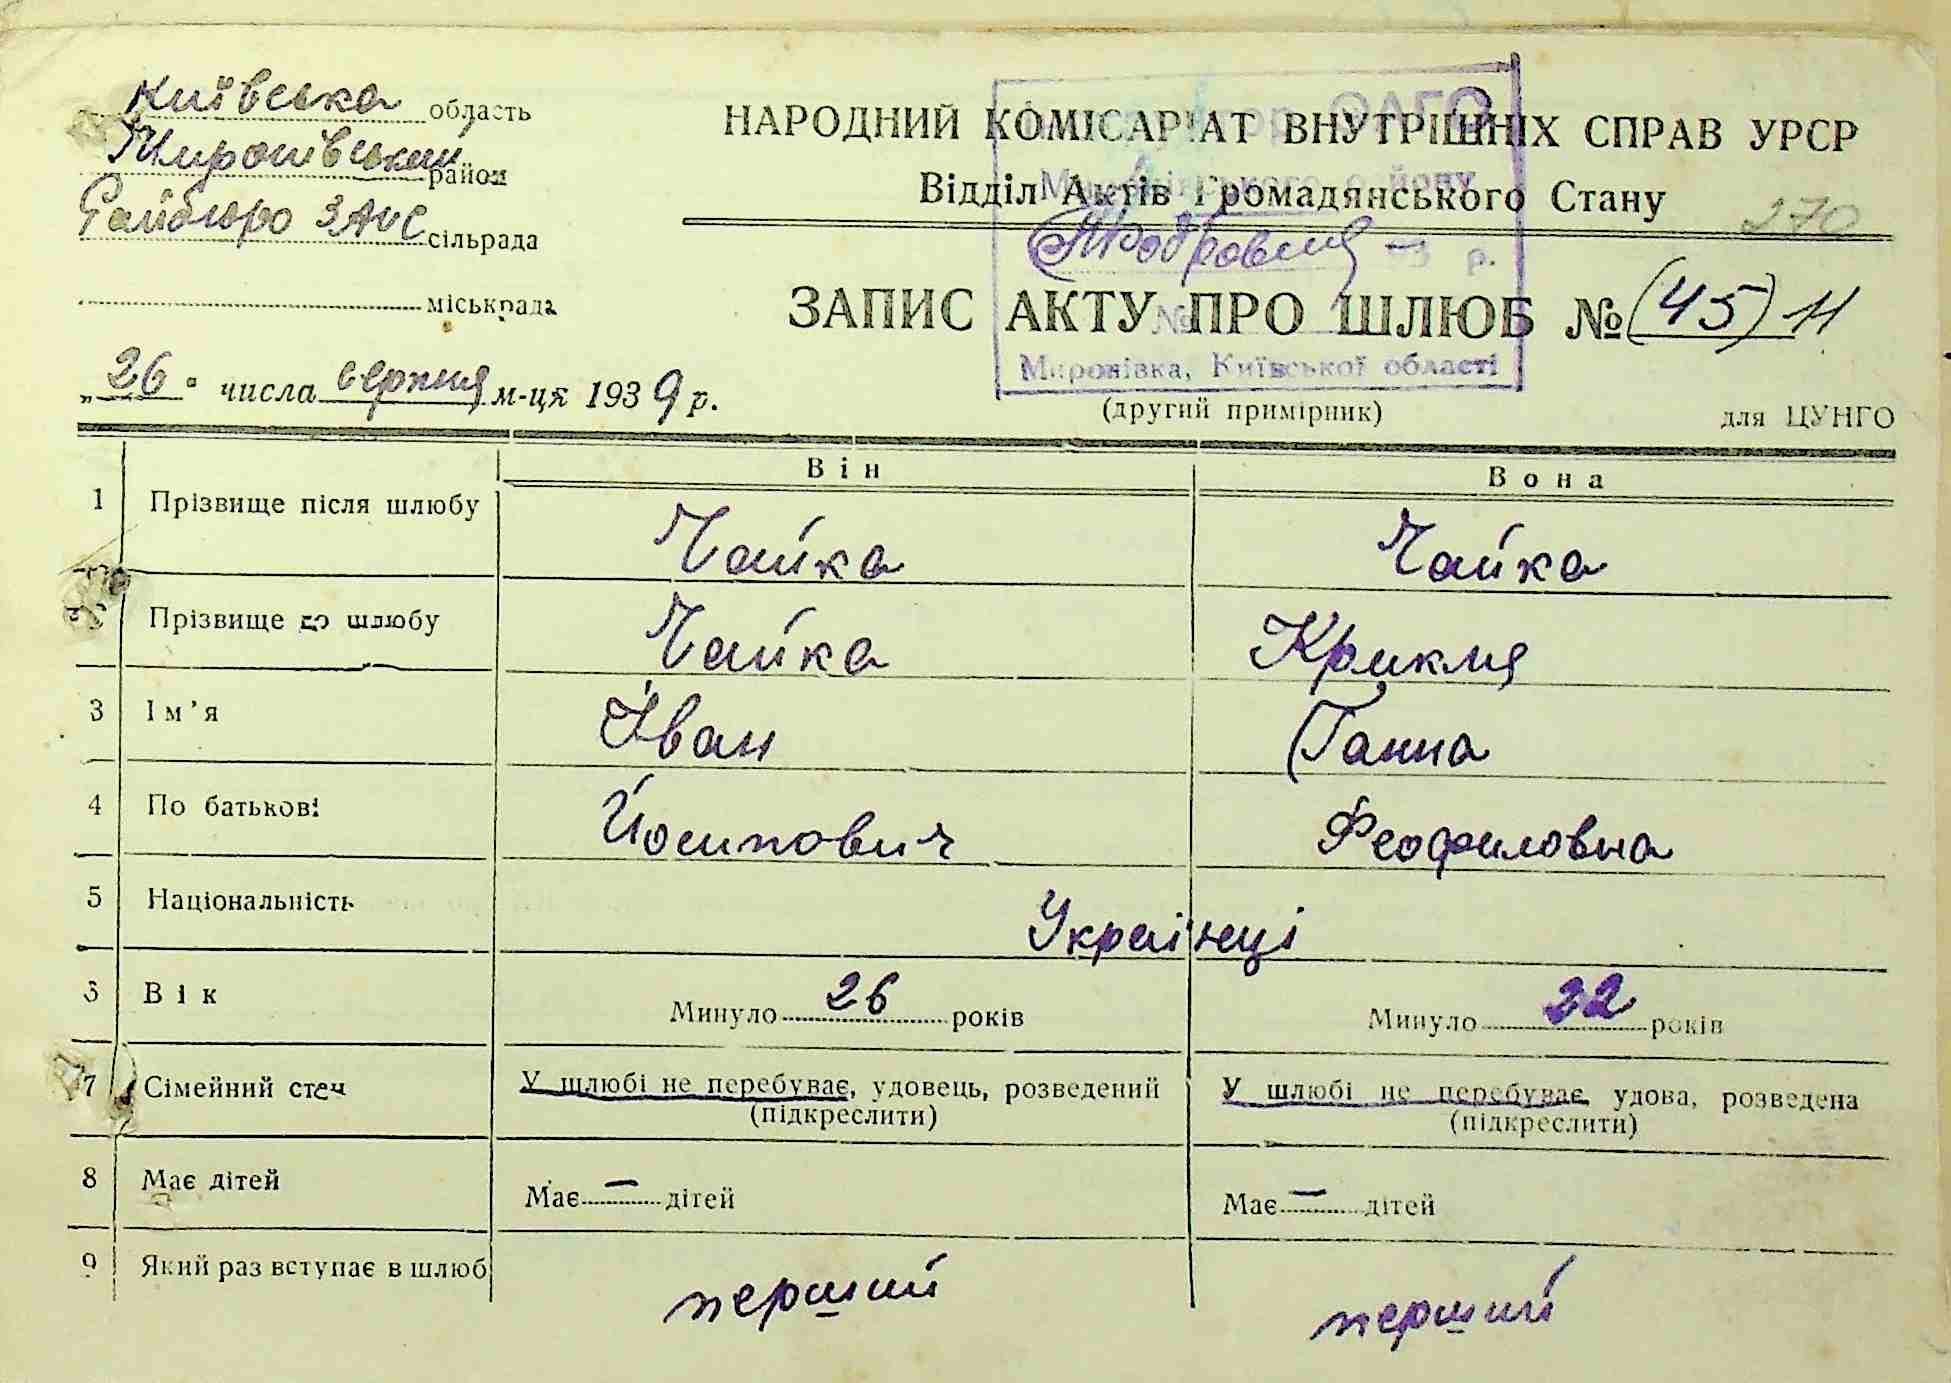 Київська область
Миронівський район
Райбюро ЗАГС сільрада
міськрада
НАРОДНИЙ КОМІСАРІАТ ВНУТРІШНІХ СПРАВ УРСР
Відділ Актів Громадянського Стану
270
ОАГС
Миронівського району
193 р.
№
Миронівка, Київської області
ЗАПИС АКТУ ПРО ШЛЮБ № (45) 11
„26" числа серпня м-ця 1939 р.
(другий примірник)
для ЦУНГО
Він
Вона
1 Прізвище після шлюбу Чайка Чайка
Прізвище до шлюбу Чайка Крикля
3 Ім'я Іван Ганна
4 По батькові Йосипович Феофиловна
5 Національність Українці
6 Вік Минуло 26 років Минуло 22 років
7 Сімейний стан У шлюбі не перебуває, удовець, розведений У шлюбі не перебуває, удова, розведена
(підкреслити) (підкреслити)
8 Має дітей Має — дітей Має — дітей
9 Який раз вступає в шлюб перший перший